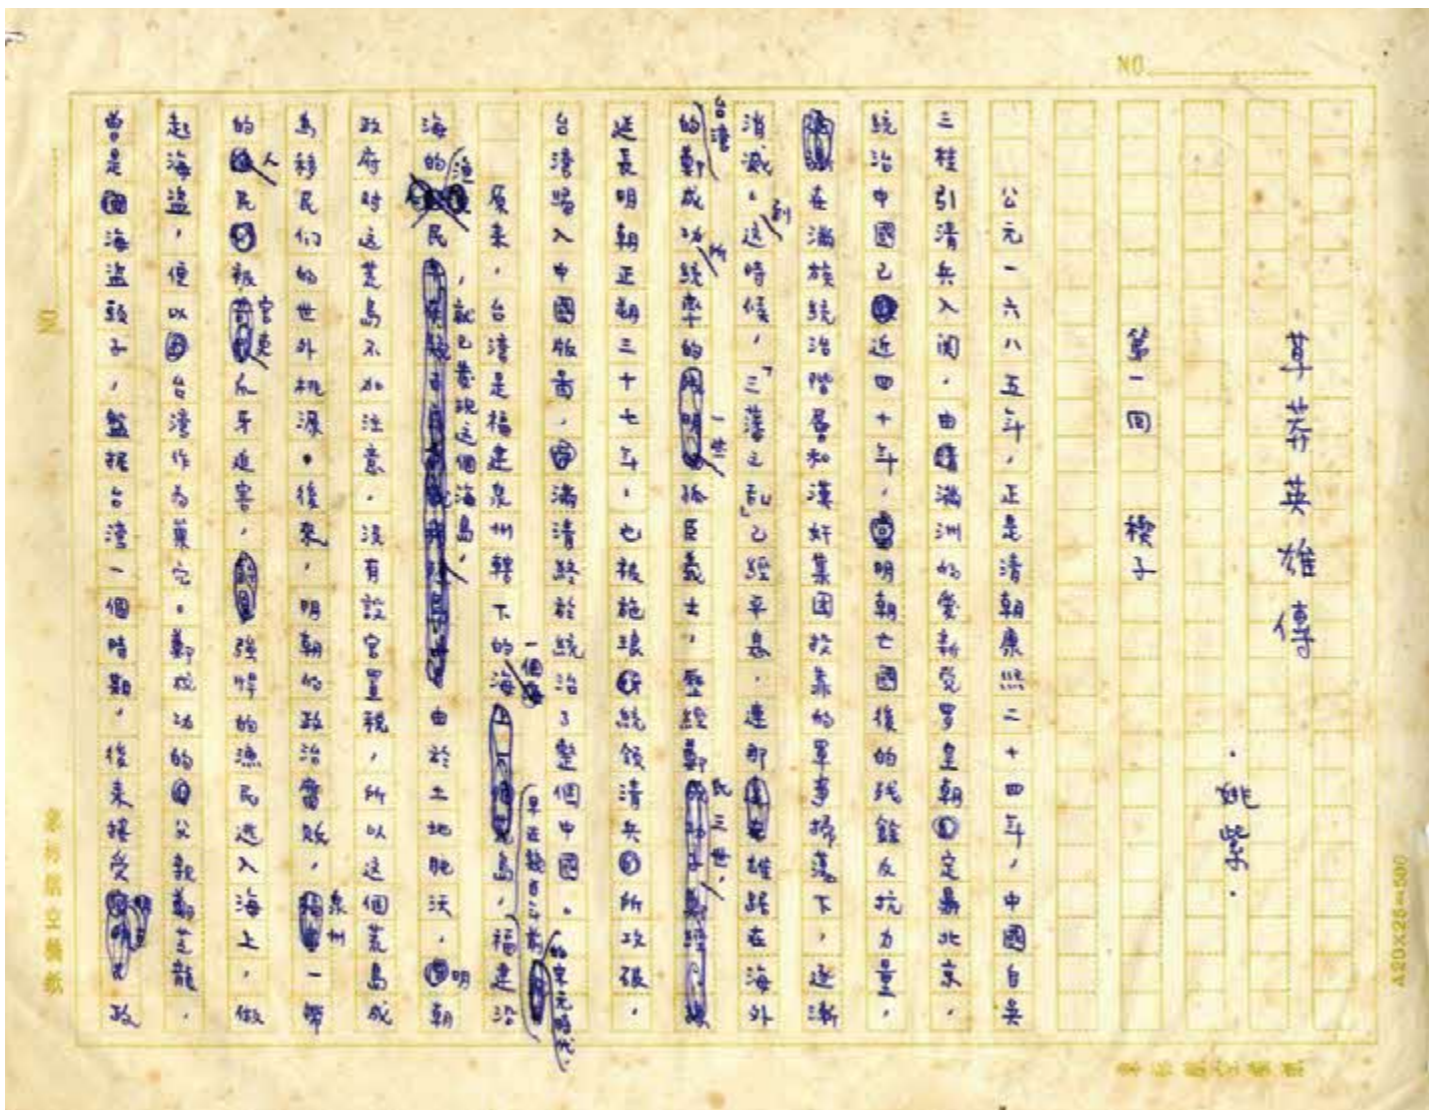 NO.
草莽英雄傳
·姚紫·
第一回 楔子
公元一六八五年，正是清朝康熙二十四年，中國自吳
三桂引清兵入関，由滿洲的愛新覚罗皇朝定鼎北京，
統治中國已近四十年，明朝亡國後的残餘反抗力量，
在滿族統治階層和漢奸集团投靠的軍事掃蕩下，逐漸
消滅。這時候，「三藩之乱」已經平息，連那雄踞在海外
台灣的鄭成功所統率的一些孤臣義士，歷經鄭氏三世，
延長明朝正朔三十七年，也被施琅統領清兵所攻張，
台灣歸入中國版畵，滿清終於統治了整個中國。
原来，台灣是福建泉州轄下的一個海島，早在的宋元時代，福建沿
海的漁民，就已發现这個海島，由於土地肥沃，明朝
政府对这荒島不加注意，没有設官置税，所以这個荒島成
為移民们的世外桃源。後來，明朝的政治腐败，泉州一帶
的人民被官吏爪牙迫害，強悍的漁民逃入海上，做
起海盗，便以台灣作為巢穴。鄭成功的父親鄭芝龍，
曾是海盜頭子，盤据台灣一個時期，後来接受政
NO.
A20X25=500